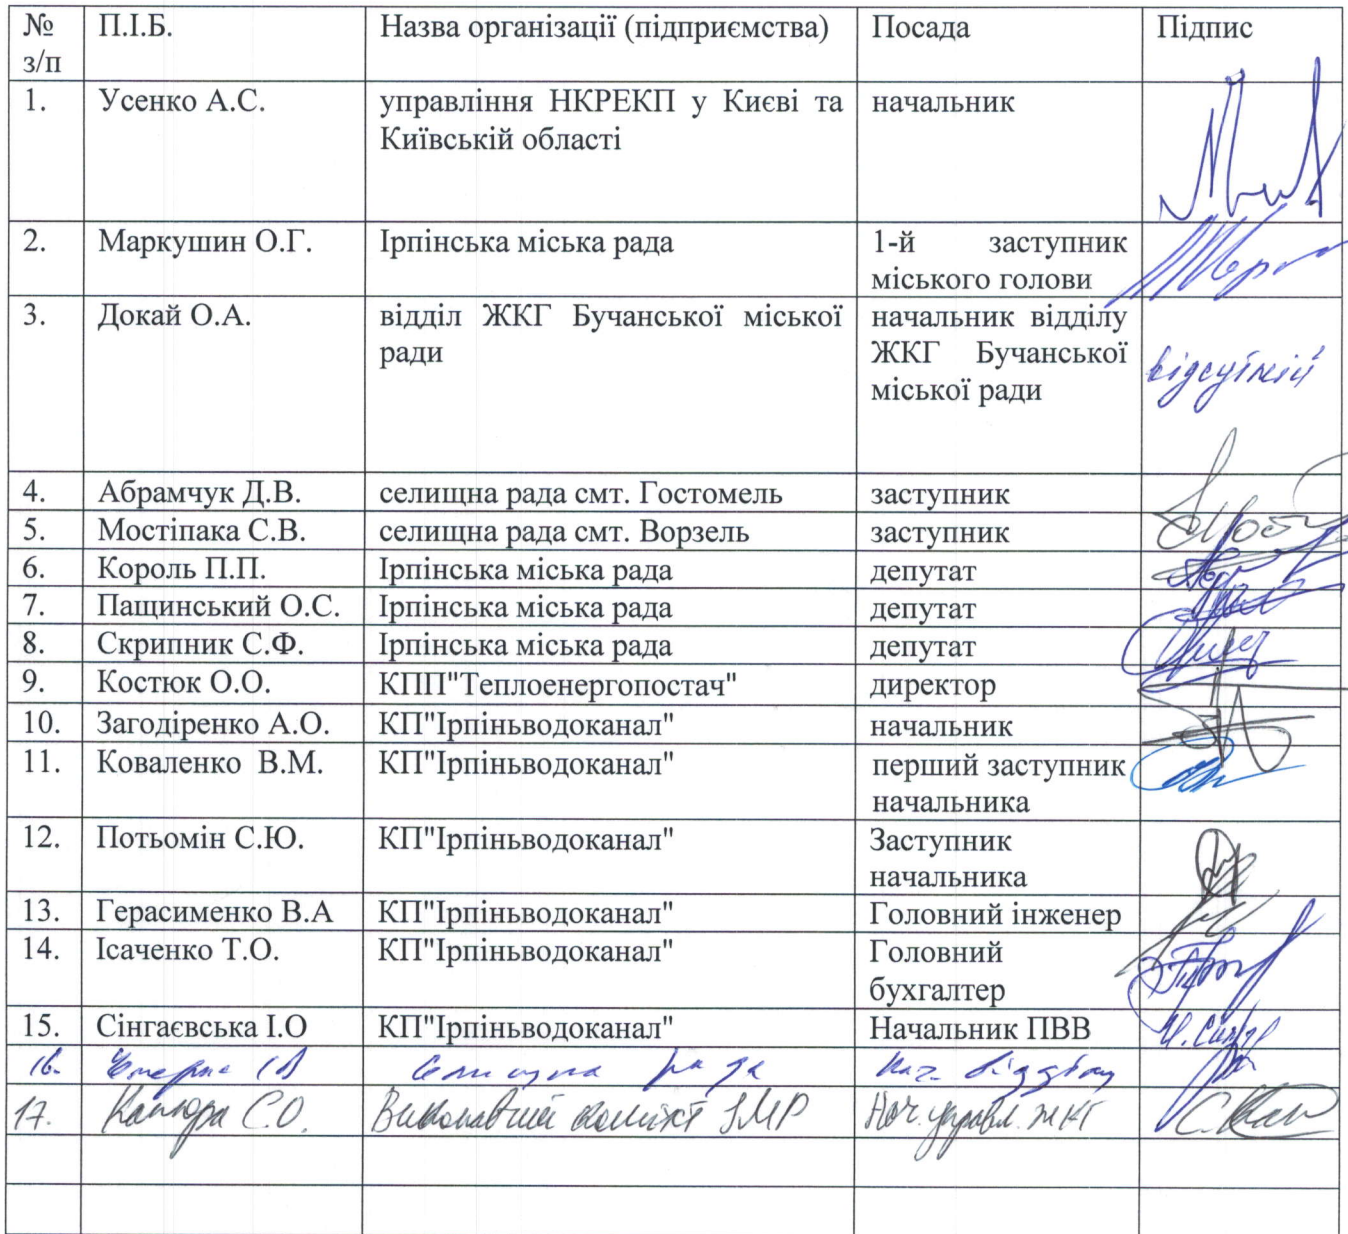 № з/п П.І.Б. Назва організації (підприємства) Посада Підпис
1. Усенко А.С. управління НКРЕКП у Києві та Київській області начальник
2. Маркушин О.Г. Ірпінська міська рада 1-й заступник міського голови
3. Докай О.А. відділ ЖКГ Бучанської міської ради начальник відділу ЖКГ Бучанської міської ради відсутній
4. Абрамчук Д.В. селищна рада смт. Гостомель заступник
5. Мостіпака С.В. селищна рада смт. Ворзель заступник
6. Король П.П. Ірпінська міська рада депутат
7. Пащинський О.С. Ірпінська міська рада депутат
8. Скрипник С.Ф. Ірпінська міська рада депутат
9. Костюк О.О. КПП"Теплоенергопостач" директор
10. Загодіренко А.О. КП"Ірпіньводоканал" начальник
11. Коваленко В.М. КП"Ірпіньводоканал" перший заступник начальника
12. Потьомін С.Ю. КП"Ірпіньводоканал" Заступник начальника
13. Герасименко В.А КП"Ірпіньводоканал" Головний інженер
14. Ісаченко Т.О. КП"Ірпіньводоканал" Головний бухгалтер
15. Сінгаєвська І.О КП"Ірпіньводоканал" Начальник ПВВ
16. Селищна рада нач. відділу
17. С.О. Виконавчий комітет ІМР Нач. управл. ЖКГ